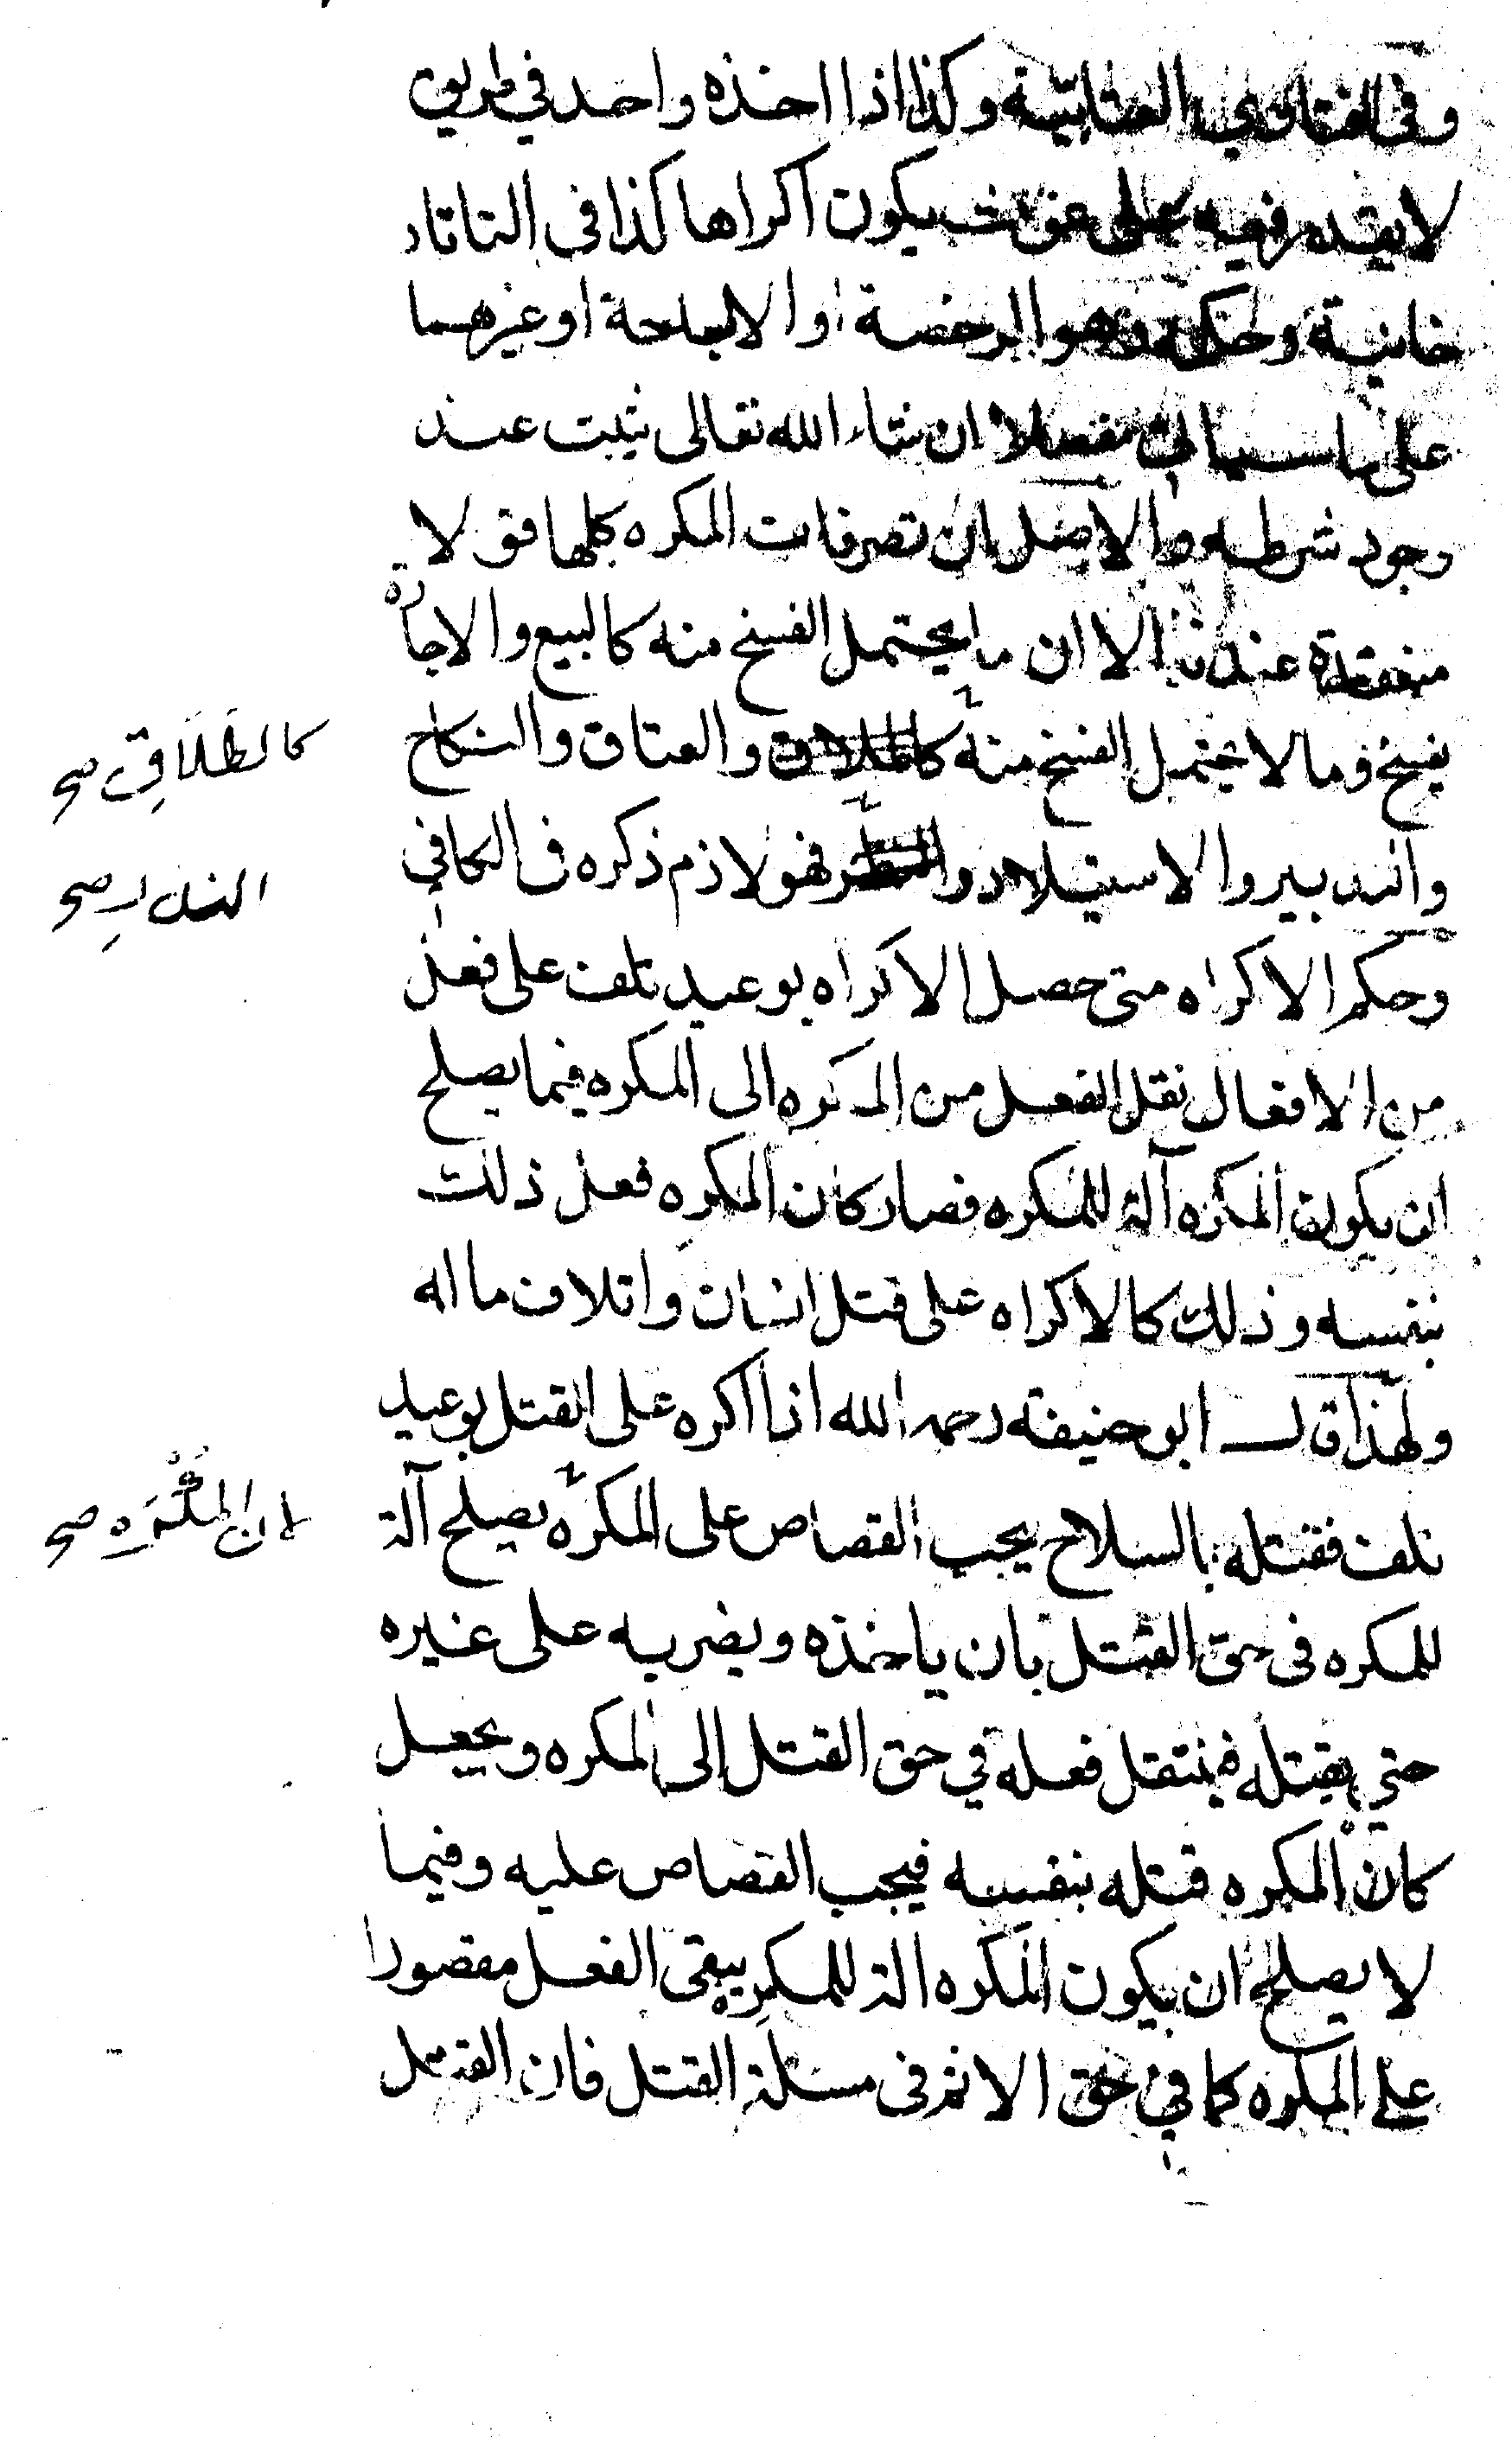 وفى الفتاوى العتابية وكذا اذا اخذه واحد في طريق
لا يقدر فيه على غوث يكون اكراها كذا فى التاتار
خانية وحكمه وهو الرخصة او الاباحة او غيرهما
على ما سياتى مفصلا ان شاء الله تعالى يثبت عند
وجود شرطه والاصل ان تصرفات المكره كلها قولا
منعقدة عندنا الا ان ما يحتمل الفسخ منه كالبيع والاجارة
يفسخ وما لا يحتمل الفسخ منه والعتاق والنكاح
كالطلاق صح
والتدبير والاستيلاد و فهو لازم ذكره فى الكافي
النذر صح
وحكم الاكراه متى حصل الاكراه بوعيد تلف على فعل
من الافعال نقل الفعل من المكره الى المكره فيما يصلح
ان يكون المكره آلة للمكره فصار كان المكره فعل ذلك
بنفسه وذلك كالاكراه على قتل انسان واتلاف ماله
ولهذا قال ابو حنيفة رحمه الله اذا اكره على القتل بوعيد
تلف فقتله بالسلاح يجب القصاص على المكره يصلح آلة
لان المكره صح
للمكره فى حق القتل بان ياخذه ويضربه على غيره
حتي يقتله فينتقل فعله في حق القتل الى المكره ويجعل
كان المكره قتله بنفسه فيجب القصاص عليه وفيما
لا يصلح ان يكون المكره الة للمكره يبقى الفعل مقصورا
على المكره كما في حق الاثم فى مسئلة القتل فان القتل